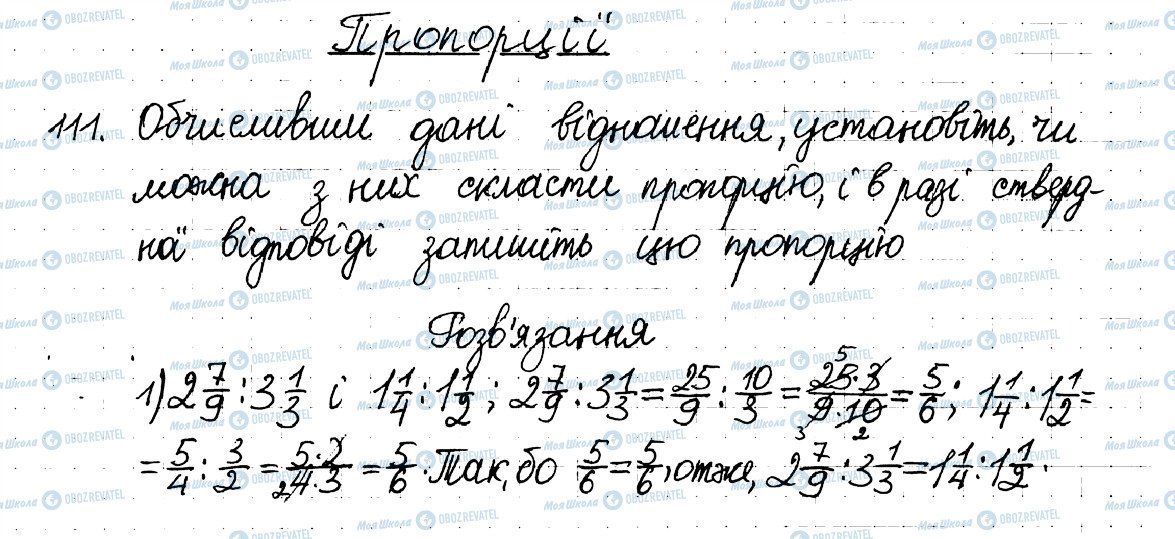 Пропорції
111. Обчисливши дані відношення, установіть, чи
можна з них скласти пропорцію, і в разі стверд-
ної відповіді запишіть цю пропорцію
Розв'язання
1) 2 7/9 : 3 1/3 і 1 1/4 : 1 1/2 ; 2 7/9 : 3 1/3 = 25/9 : 10/3 = 25·3/9·10 = 5/6 ; 1 1/4 : 1 1/2 =
= 5/4 : 3/2 = 5·2/4·3 = 5/6 . Так, бо 5/6 = 5/6, отже, 2 7/9 : 3 1/3 = 1 1/4 : 1 1/2 .